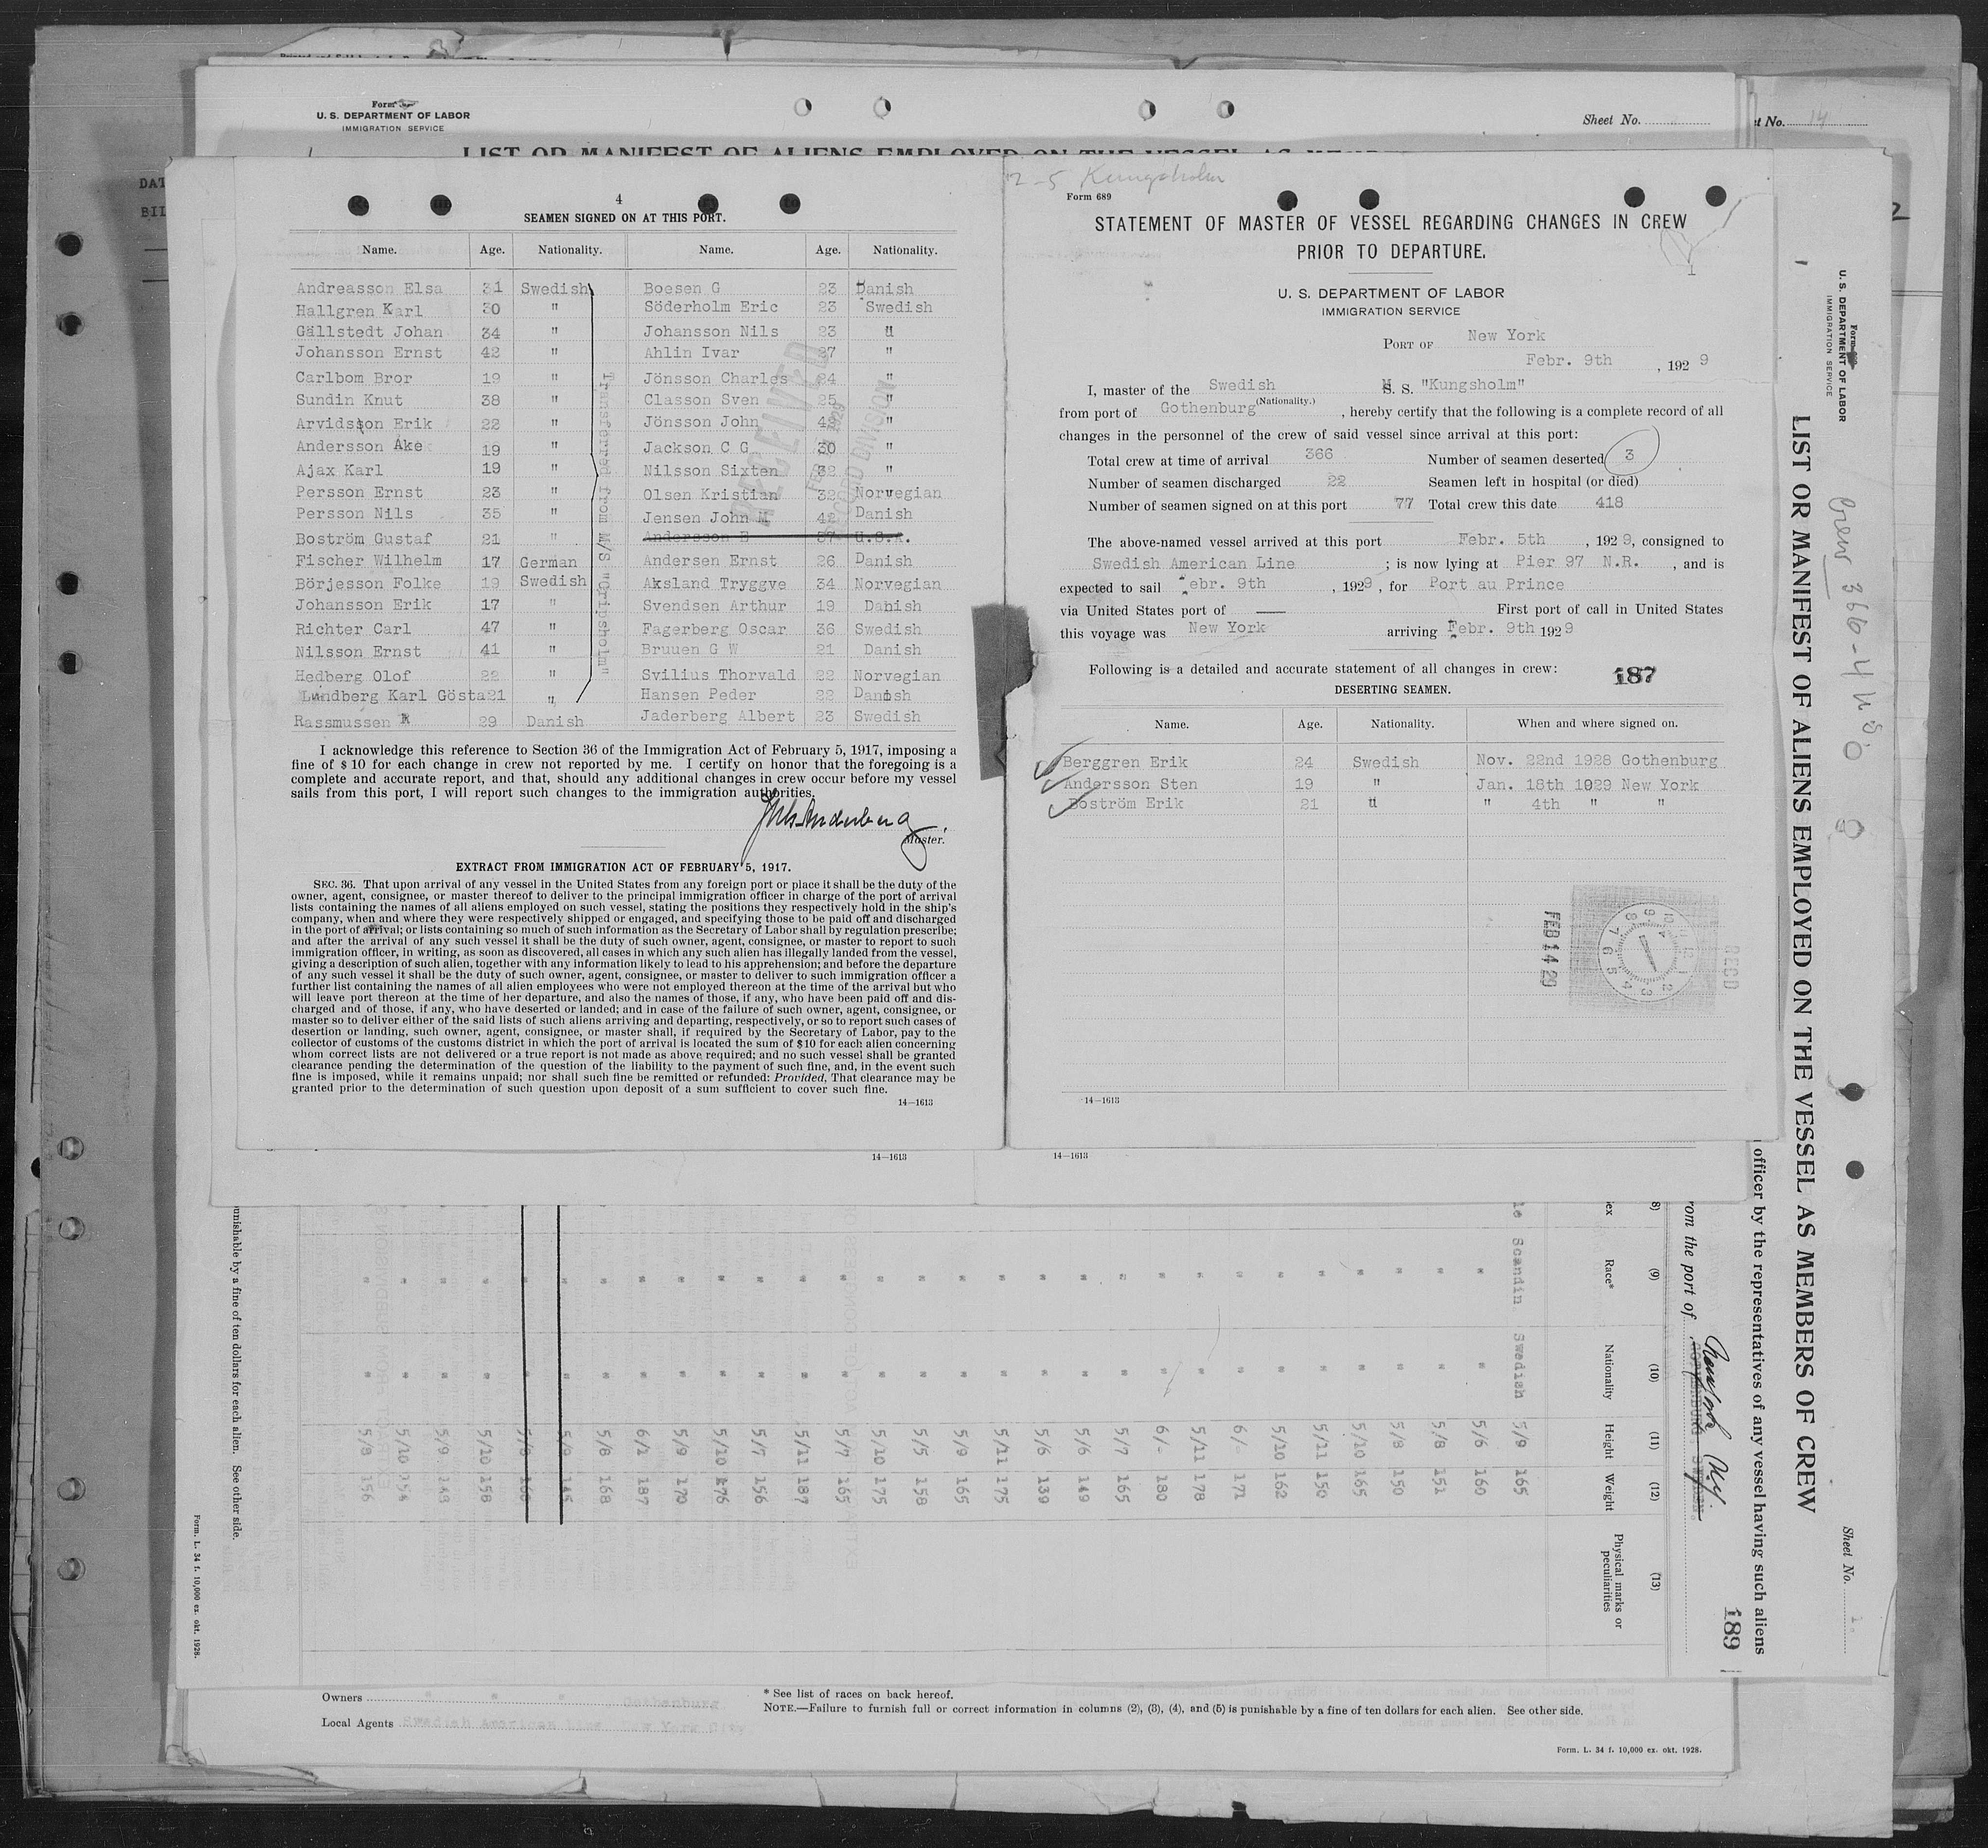 Form
U. S. DEPARTMENT OF LABOR
IMMIGRATION SERVICE
Sheet No.
t No. 14
LIST OR MANIFEST OF ALIENS EMPLOYED ON THE VESSEL AS
DAT
BIL
4
SEAMEN SIGNED ON AT THIS PORT.
Name. Age. Nationality. Name. Age. Nationality.
Andreasson Elsa 31 Swedish Boesen G 23 Danish
Hallgren Karl 30 " Söderholm Eric 23 Swedish
Gällstedt Johan 34 " Johansson Nils 23 "
Johansson Ernst 42 " Ahlin Ivar 27 "
Carlbom Bror 19 " Jönsson Charles 24 "
Sundin Knut 38 " Classon Sven 25 "
Arvidsson Erik 22 " Jönsson John 42 "
Andersson Åke 19 " Jackson C G 30 "
Ajax Karl 19 " Nilsson Sixten 32 "
Persson Ernst 23 " Olsen Kristian 32 Norwegian
Persson Nils 35 " Jensen John M 42 Danish
Boström Gustaf 21 " Andersson E 37 U.S.A.
Fischer Wilhelm 17 German Andersen Ernst 26 Danish
Börjesson Folke 19 Swedish Aksland Tryggve 34 Norwegian
Johansson Erik 17 " Svendsen Arthur 19 Danish
Richter Carl 47 " Fagerberg Oscar 36 Swedish
Nilsson Ernst 41 " Bruuen G W 21 Danish
Hedberg Olof 22 " Svilius Thorvald 22 Norwegian
Lundberg Karl Gösta 21 " Hansen Peder 22 Danish
Rassmussen R 29 Danish Jaderberg Albert 23 Swedish
Transferred from M/S "Gripsholm"
RECEIVED
RECORD DIVISION
I acknowledge this reference to Section 36 of the Immigration Act of February 5, 1917, imposing a
fine of $10 for each change in crew not reported by me. I certify on honor that the foregoing is a
complete and accurate report, and that, should any additional changes in crew occur before my vessel
sails from this port, I will report such changes to the immigration authorities.
Master.
EXTRACT FROM IMMIGRATION ACT OF FEBRUARY 5, 1917.
SEC. 36. That upon arrival of any vessel in the United States from any foreign port or place it shall be the duty of the
owner, agent, consignee, or master thereof to deliver to the principal immigration officer in charge of the port of arrival
lists containing the names of all aliens employed on such vessel, stating the positions they respectively hold in the ship's
company, when and where they were respectively shipped or engaged, and specifying those to be paid off and discharged
in the port of arrival; or lists containing so much of such information as the Secretary of Labor shall by regulation prescribe;
and after the arrival of any such vessel it shall be the duty of such owner, agent, consignee, or master to report to such
immigration officer, in writing, as soon as discovered, all cases in which any such alien has illegally landed from the vessel,
giving a description of such alien, together with any information likely to lead to his apprehension; and before the departure
of any such vessel it shall be the duty of such owner, agent, consignee, or master to deliver to such immigration officer a
further list containing the names of all alien employees who were not employed thereon at the time of the arrival but who
will leave port thereon at the time of her departure, and also the names of those, if any, who have been paid off and dis-
charged and of those, if any, who have deserted or landed; and in case of the failure of such owner, agent, consignee, or
master so to deliver either of the said lists of such aliens arriving and departing, respectively, or so to report such cases of
desertion or landing, such owner, agent, consignee, or master shall, if required by the Secretary of Labor, pay to the
collector of customs of the customs district in which the port of arrival is located the sum of $10 for each alien concerning
whom correct lists are not delivered or a true report is not made as above required; and no such vessel shall be granted
clearance pending the determination of the question of the liability to the payment of such fine, and, in the event such
fine is imposed, while it remains unpaid; nor shall such fine be remitted or refunded: Provided, That clearance may be
granted prior to the determination of such question upon deposit of a sum sufficient to cover such fine.
14—1613
14—1613
2-5 Kungsholm
Form 689
STATEMENT OF MASTER OF VESSEL REGARDING CHANGES IN CREW
PRIOR TO DEPARTURE.
U. S. DEPARTMENT OF LABOR
IMMIGRATION SERVICE
PORT OF New York
Febr. 9th, 1929
I, master of the Swedish M. S. "Kungsholm"
(Nationality.)
from port of Gothenburg, hereby certify that the following is a complete record of all
changes in the personnel of the crew of said vessel since arrival at this port:
Total crew at time of arrival 366 Number of seamen deserted 3
Number of seamen discharged 22 Seamen left in hospital (or died)
Number of seamen signed on at this port 77 Total crew this date 418
The above-named vessel arrived at this port Febr. 5th, 1929, consigned to
Swedish American Line; is now lying at Pier 97 N.R., and is
expected to sail Febr. 9th, 1929, for Port au Prince
via United States port of — First port of call in United States
this voyage was New York arriving Febr. 9th 1929
Following is a detailed and accurate statement of all changes in crew:
187
DESERTING SEAMEN.
Name. Age. Nationality. When and where signed on.
Berggren Erik 24 Swedish Nov. 22nd 1928 Gothenburg
Andersson Sten 19 " Jan. 18th 1929 New York
Boström Erik 21 " " 4th " "
FEB 14 29
RECD
14—1613
14—1613
Form
U. S. DEPARTMENT OF LABOR
IMMIGRATION SERVICE
Crew 366-4
Sheet No. 1.
LIST OR MANIFEST OF ALIENS EMPLOYED ON THE VESSEL AS MEMBERS OF CREW
officer by the representatives of any vessel having such aliens
189
rom the port of New York
8) (9) (10) (11) (12) (13)
ex Race* Nationality Height Weight Physical marks or peculiarities
le Scandin Swedish 5/9 165
" " 5/6 160
" " 5/8 151
" " 5/8 150
" " 5/10 165
" " 5/11 150
" " 5/10 162
" " 6/- 171
" " 5/11 178
" " 6/- 180
" " 5/7 165
" " 5/6 149
" " 5/6 139
" " 5/11 175
" " 5/9 165
" " 5/5 158
" " 5/10 175
" " 5/7 165
" " 5/11 187
" " 5/7 156
" " 5/10 176
" " 5/9 170
" " 6/1 187
" " 5/8 168
" " 5/9 145
" " 5/8 160
" " 5/10 158
" " 5/9 148
" " 5/10 154
" " 5/8 156
punishable by a fine of ten dollars for each alien. See other side.
Form. L. 34 f. 10,000 ex. okt. 1928.
Owners " " " Gothenburg
Local Agents Swedish American Line New York City
* See list of races on back hereof.
NOTE.—Failure to furnish full or correct information in columns (2), (3), (4), and (5) is punishable by a fine of ten dollars for each alien. See other side.
Form. L. 34 f. 10,000 ex. okt. 1928.